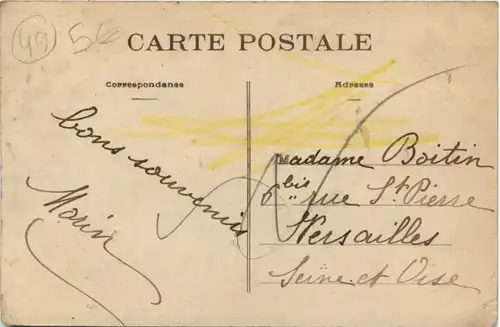 49 5€
CARTE POSTALE
Correspondance
Adresse
bons souvenirs
Marin
Madame Boitin
6 bis rue St Pierre
Versailles
Seine et Oise